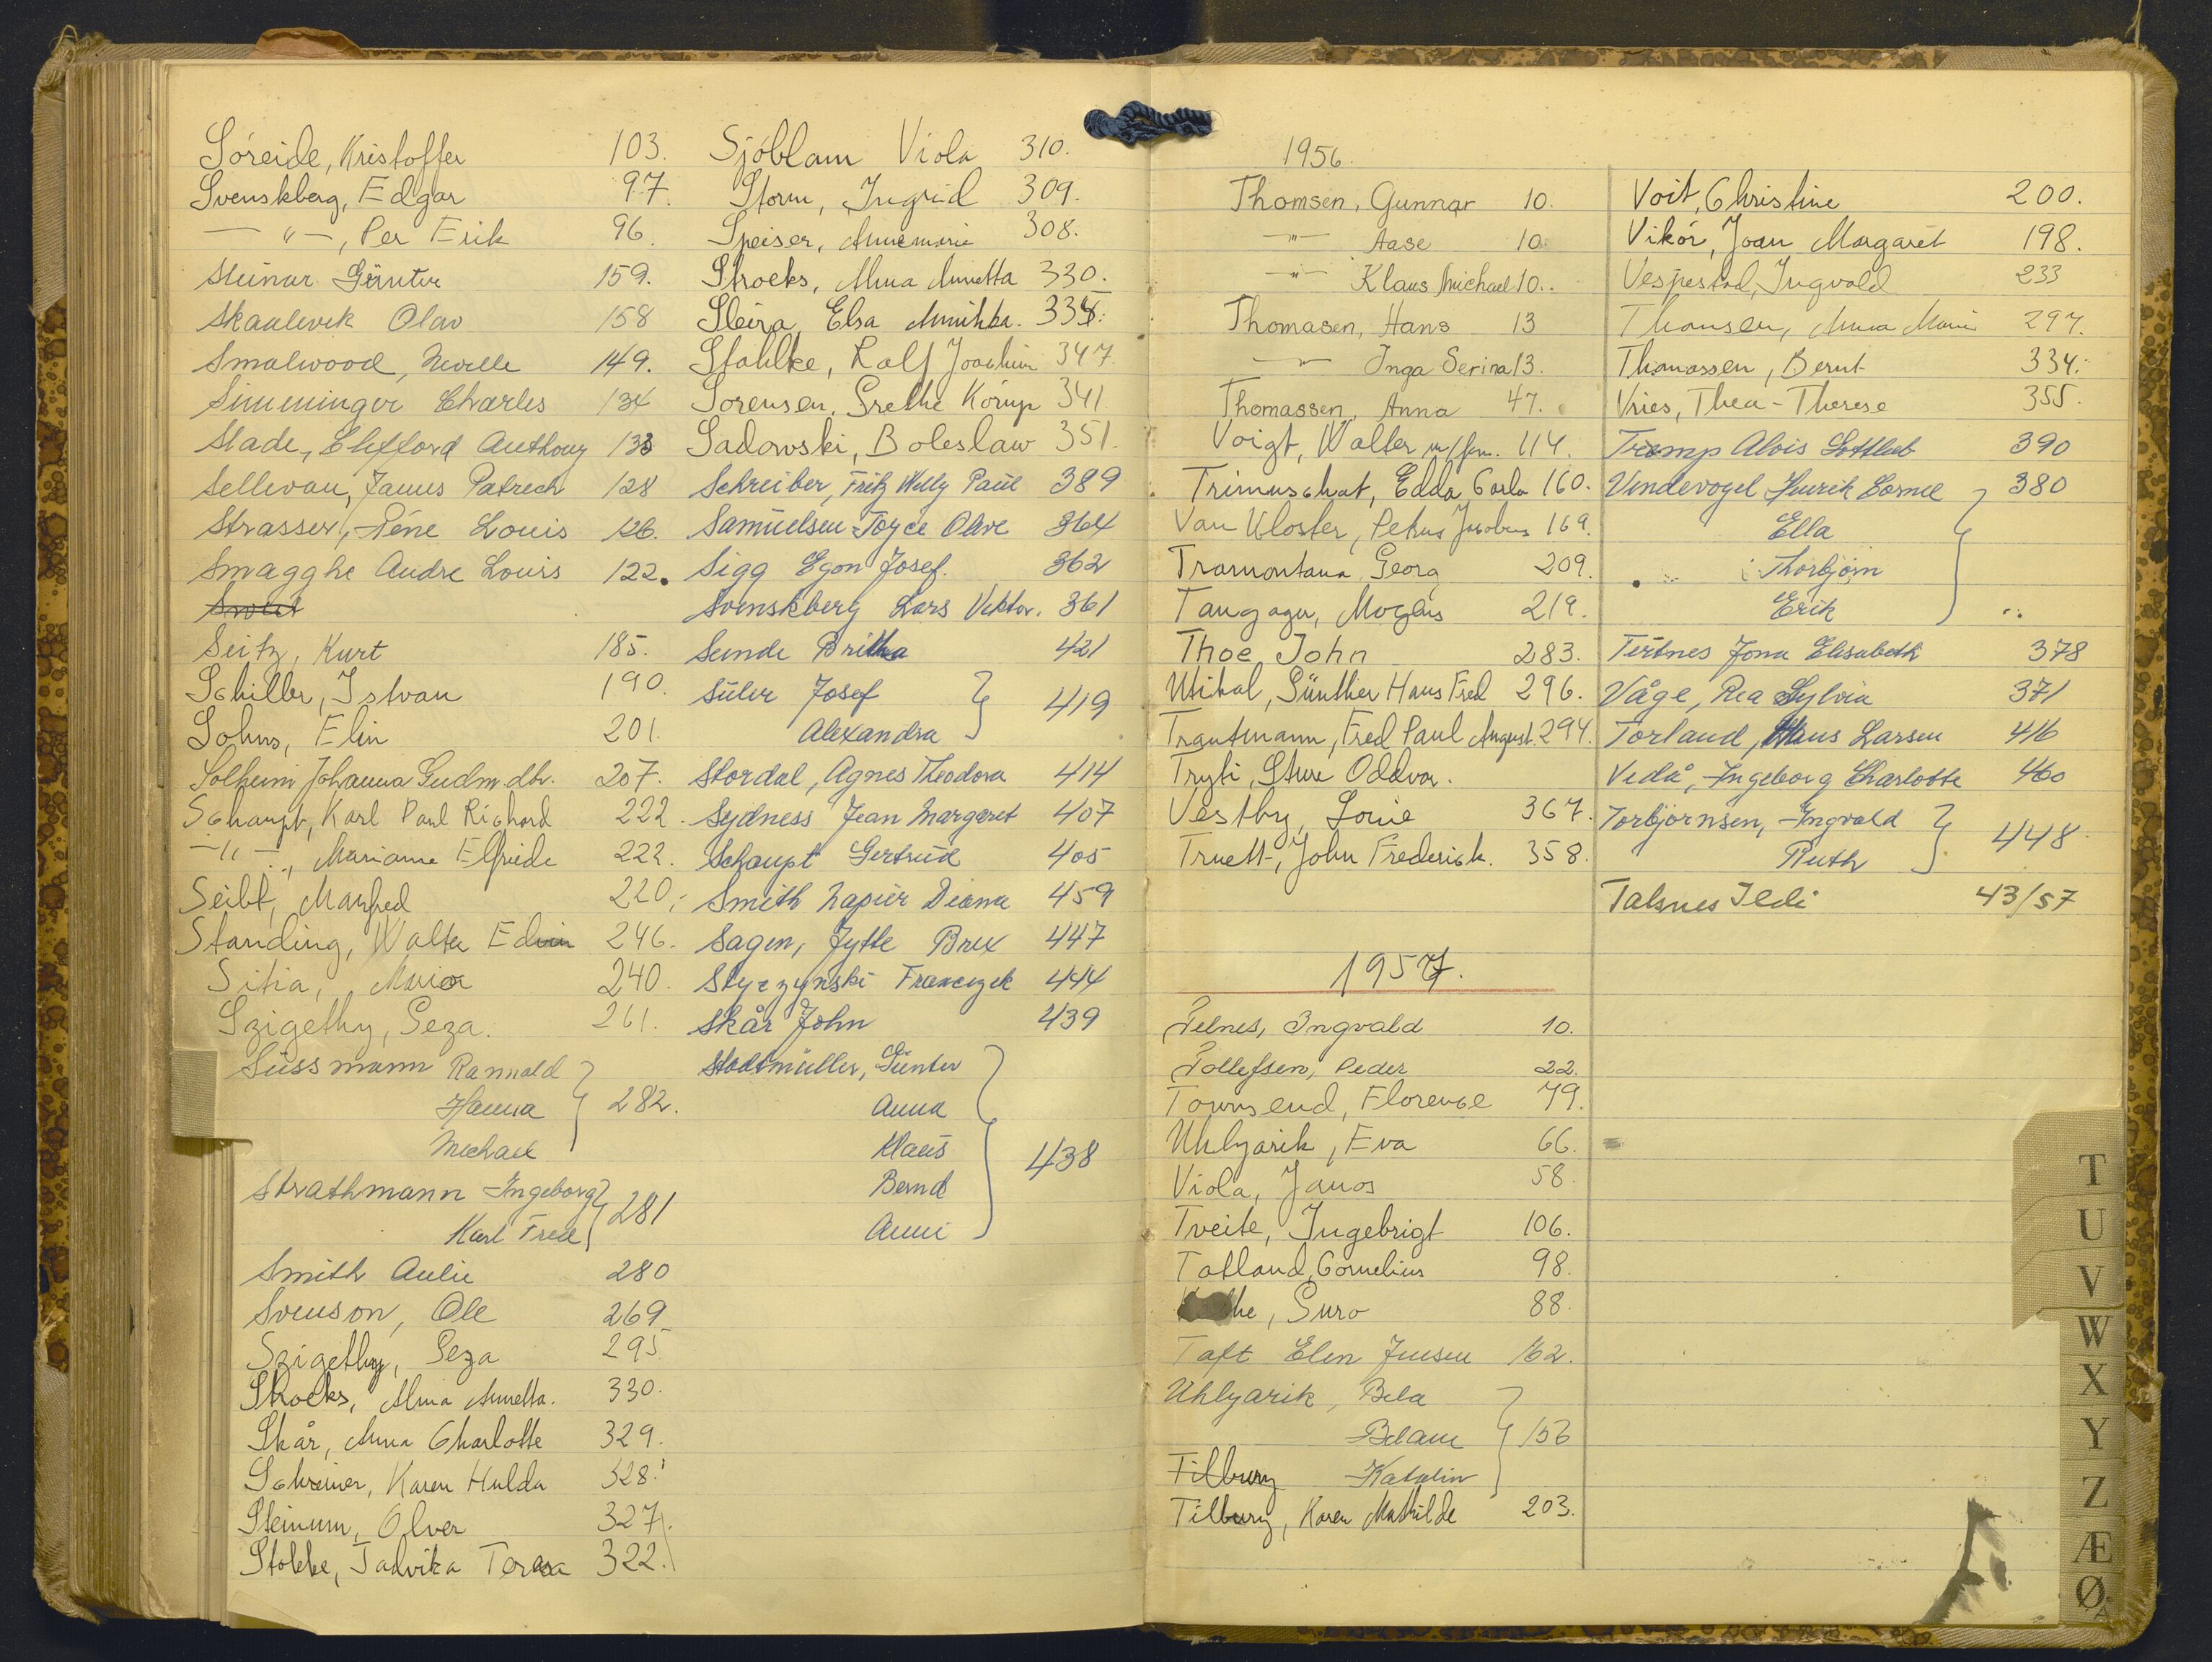 Söreide, Kristoffer 103.
Svenskberg, Edgar 97.
— " —, Per Erik 96.
Steinar Günter 159.
Skaalevik Olav 158
Smalwood, Neville 149.
Simminger Charles 134
Slade, Clifford Anthony 133
Sellevan, James Patrech 128
Strasser, Réne Louis 126.
Smagghe Andre Louis 122.
Seitz, Kurt 185.
Schiller, Istvan 190.
Sohns, Elin 201.
Solheim Johanna Gudm.dtr. 207.
Schaupt, Karl Paul Richard 222.
— " —, Marianne Elfriede 222.
Seibt, Manfred 220.
Standing, Walter Edwin 246.
Sitia, Maria 240.
Szigethy, Geza. 261.
Süssmann Rannald
Hanna 282.
Michael
Strathmann Ingeborg 281
Karl Fred
Smith Aulie 280
Svenson, Ole 269
Szigethy, Geza 295
Strocks, Alma Annetta. 330.
Skår, Anna Charlotte 329.
Schreiner, Karen Hulda 328.
Steinum, Olver 327.
Stokke, Jadvika Teresa 322.
Sjöblam Viola 310.
Storm, Ingrid 309.
Speiser, Annemarie 308.
Strocks, Alma Annetta 330.
Sleira, Elsa 334.
Stahlke, Ralf Joachim 347.
Sorensen, Grethe Korup 341
Sadowski, Boleslaw 351.
Schreiber, Fritz Willy Paul 389
Samuelsen Joyce Olive 364
Sigg Egon Josef. 362
Svenskberg Lars Viktor. 361
Sunde Britha 421
Süler Josef 419
Alexandra
Stordal, Agnes Theodora 414
Sydness Jean Margaret 407
Schaupt Gertrud 405
Smith Napier Diana 459
Sagen, Jytte Brix 447
Styczynski Franczek 444
Skår John 439
Stadtmüller, Günter
Anna
Klaus 438
Bernd
Anni
1956.
Thomsen, Gunnar 10.
— " — Aase 10.
— " — Klaus Michael 10.
Thomasen, Hans 13
— " — Inga Serina 13.
Thomassen, Anna 47.
Voigt, Walter m/fam. 114.
Trimuschat, Edda Carla 160.
Van Kloster, Petrus Jacobus 169.
Tramontana, Georg 209.
Tangager, Mogens 219.
Thoe John 283.
Utikal, Günther Hans Fred 296.
Trautmann, Fred Paul August. 294.
Tryti, Sture Oddvar.
Vestby, Louie 367.
Truett, John Frederick. 358.
1957.
Telnes, Ingvald 10.
Tollefsen, Peder 22.
Townsend, Florence 79.
Uhlyarik, Eva 66.
Viola, Janos 58.
Tveite, Ingebrigt 106.
Tatland, Cornelius 98.
he, Guro 88.
Taft Elen Jensen 162.
Uhlyarik, Bela
Belane 156
Tilbury Katalin
Tilbury, Karen Mathilde 203.
Voit, Christine 200.
Vikör, Joan Margaret 198.
Vespestad, Ingvald 233
Thomsen, Anna Marie 297.
Thomassen, Bernt 334.
Vries, Thea-Therese 355.
Tromp Alois Gottlieb 390
Vindevogel Henrik Cornel 380
Ella
Thorbjörn
Erik
Tertnes Jona Elisabeth 378
Våge, Rea Sylvia 371
Torland, Hans Larsen 416
Vedå, Ingeborg Charlotte 460
Torbjornsen, Ingvald 448
Ruth
Talsnes Ildi 43/57
T
U
V
W
X
Y
Z
Æ
Ø
Å